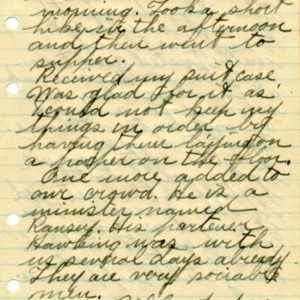 morning. Took a short
hike in the afternoon
and then went to
supper.
Received my suit case
Was glad for it as
I could not keep my
things in order by
having them laying on
a paper on the floor.
One more added to
our crowd. He is a
minister named
Ransey. His partener
Hawking was with
us several days already
They are very sociable
men.